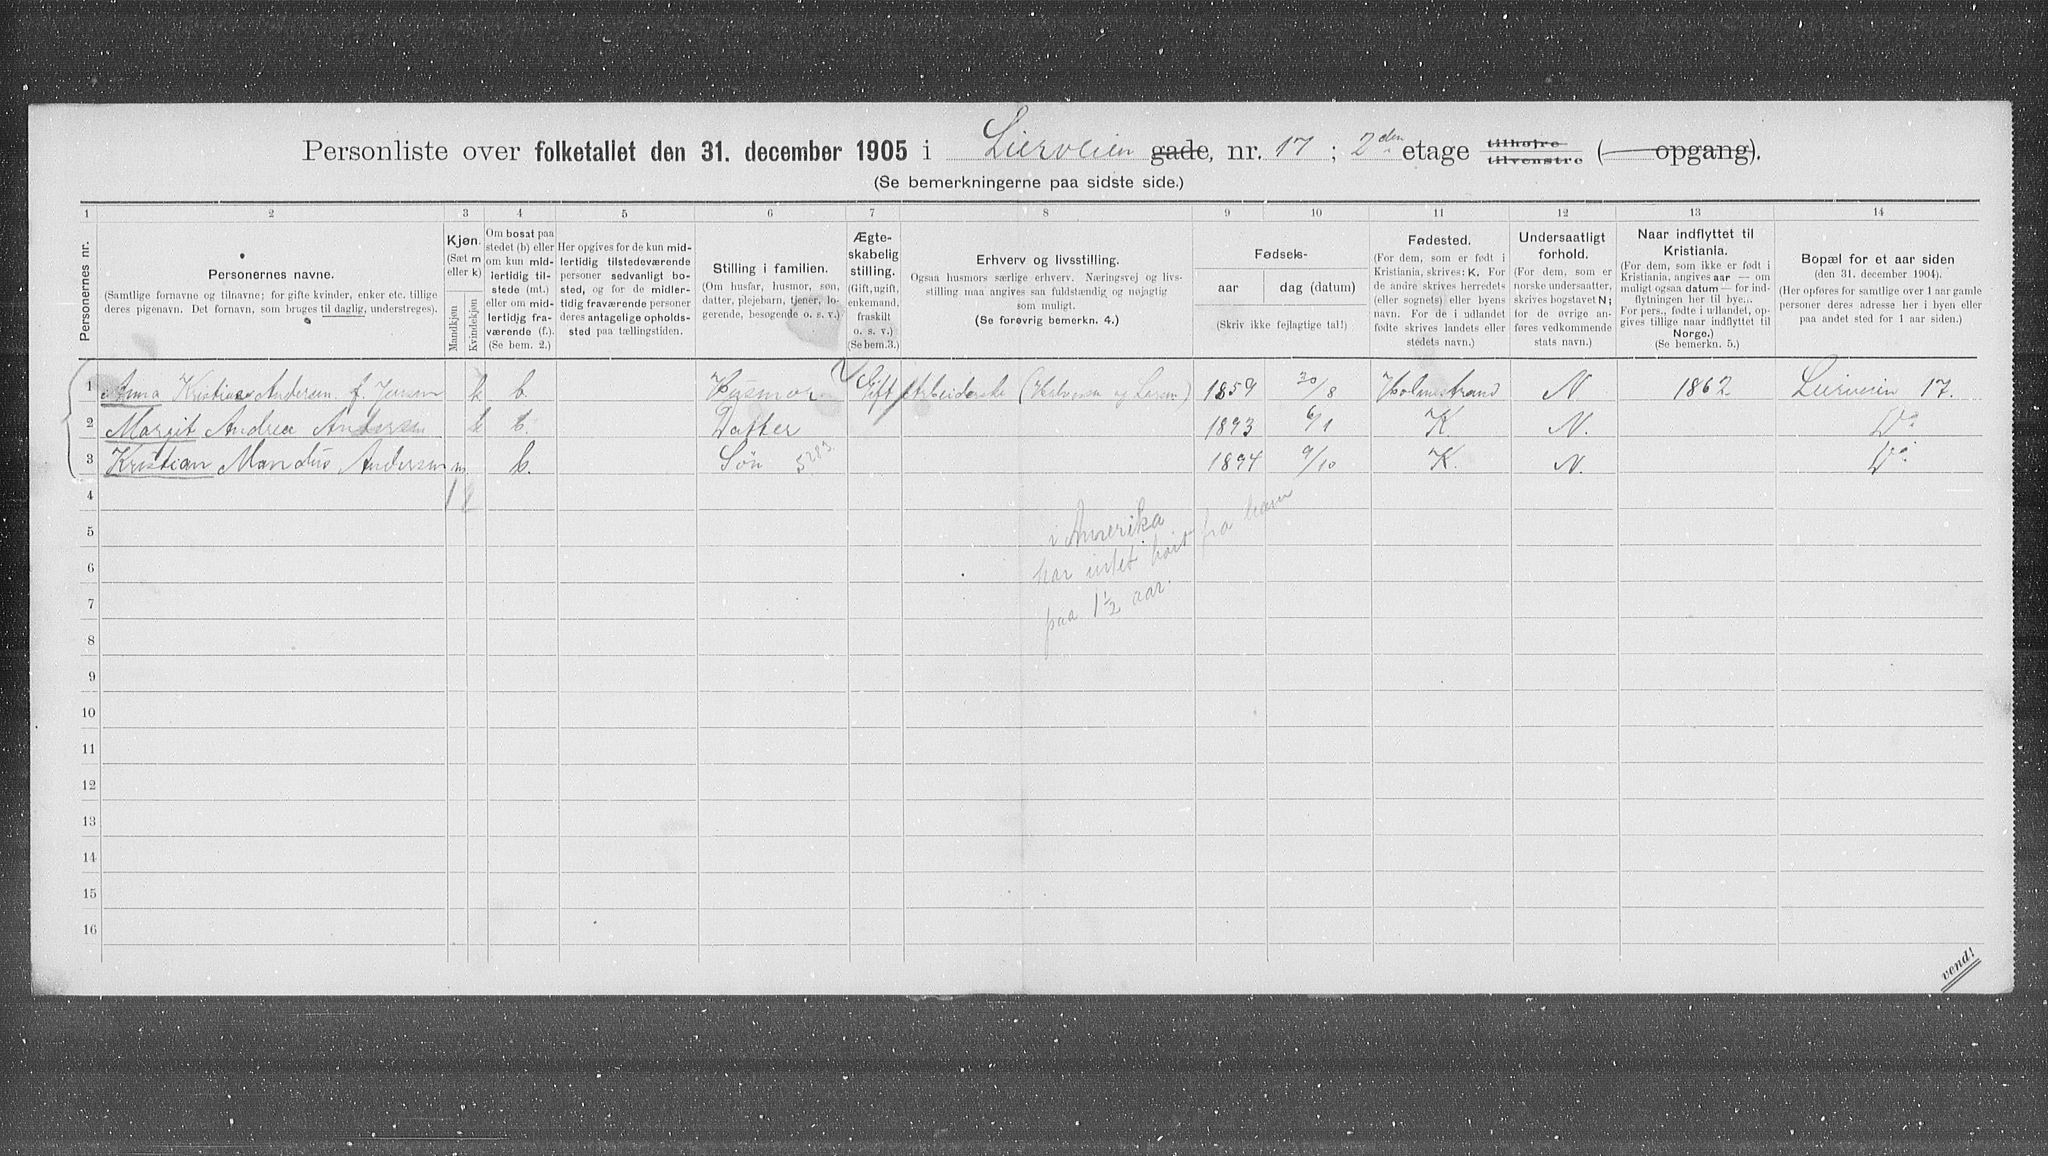 Personliste over folketallet den 31. december 1905 i Lierveien gade, nr. 17 ; 2den etage tilhøjre tilvenstre ( opgang).
(Se bemerkningerne paa sidste side.)
1 2 3 4 5 6 7 8 9 10 11 12 13 14
Personernes nr.
Personernes navne.
(Samtlige fornavne og tilnavne; for gifte kvinder, enker etc. tillige
deres pigenavn. Det fornavn, som bruges til daglig, understreges).
Kjøn.
(Sæt m
eller k)
Mandkjøn
Kvindekjøn
Om bosat paa
stedet (b) eller
om kun mid-
lertidig til-
stede (mt.)
eller om mid-
lertidig fra-
værende (f.).
(Se bem. 2.)
Her opgives for de kun mid-
lertidig tilstedeværende
personer sedvanligt bo-
sted, og for de midler-
tidig fraværende personer
deres antagelige opholds-
sted paa tællingstiden.
Stilling i familien.
(Om husfar, husmor, søn,
datter, plejebarn, tjener, lo-
gerende, besøgende o. s. v.)
Ægte-
skabelig
stilling.
(Gift, ugift,
enkemand,
fraskilt
o. s. v.)
(Se bem.3.)
Erhverv og livsstilling.
Ogsaa husmors særlige erhverv. Næringsvej og livs-
stilling maa angives saa fuldstændig og nøjagtig
som muligt.
(Se forøvrig bemerkn. 4.)
Fødsels-
aar dag (datum)
(Skriv ikke fejlagtige tal!)
Fødested.
(For dem, som er født i
Kristiania, skrives: K. For
de andre skrives herredets
(eller sognets) eller byens
navn. For de i udlandet
fødte skrives landets eller
stedets navn.)
Undersaatligt
forhold.
(For dem, som er
norske undersaatter,
skrives bogstavet N;
for de øvrige an-
føres vedkommende
stats navn.)
Naar indflyttet til
Kristiania.
(For dem, som ikke er født i
Kristiania, angives aar — om
muligt ogsaa datum — for ind-
flytningen her til bye..
For pers., fødte i udlandet, op-
gives tillige naar indflyttet til
Norge.)
(Se bemerkn. 5.)
Bopæl for et aar siden
(den 31. december 1904).
(Her opføres for samtlige over 1 aar gamle
personer deres adresse her i byen eller
paa andet sted for 1 aar siden.)
1 Anna Kristine Andersen f. Jensen k b. Husmor Gift Arbeiderske 1859 30/8 Holmestrand N 1862 Lierveien 17.
2 Margit Andrea Andersen k b. Datter 1893 6/1 K. N. Do
3 Kristian Mandus Andersen m. b. Søn 5283 1894 9/10 K. N. Do
4 1 2
5
6
7
8
9
10
11
12
13
14
15
16
i Amerika
har intet hört fra ham
paa 1½ aar.
vend!